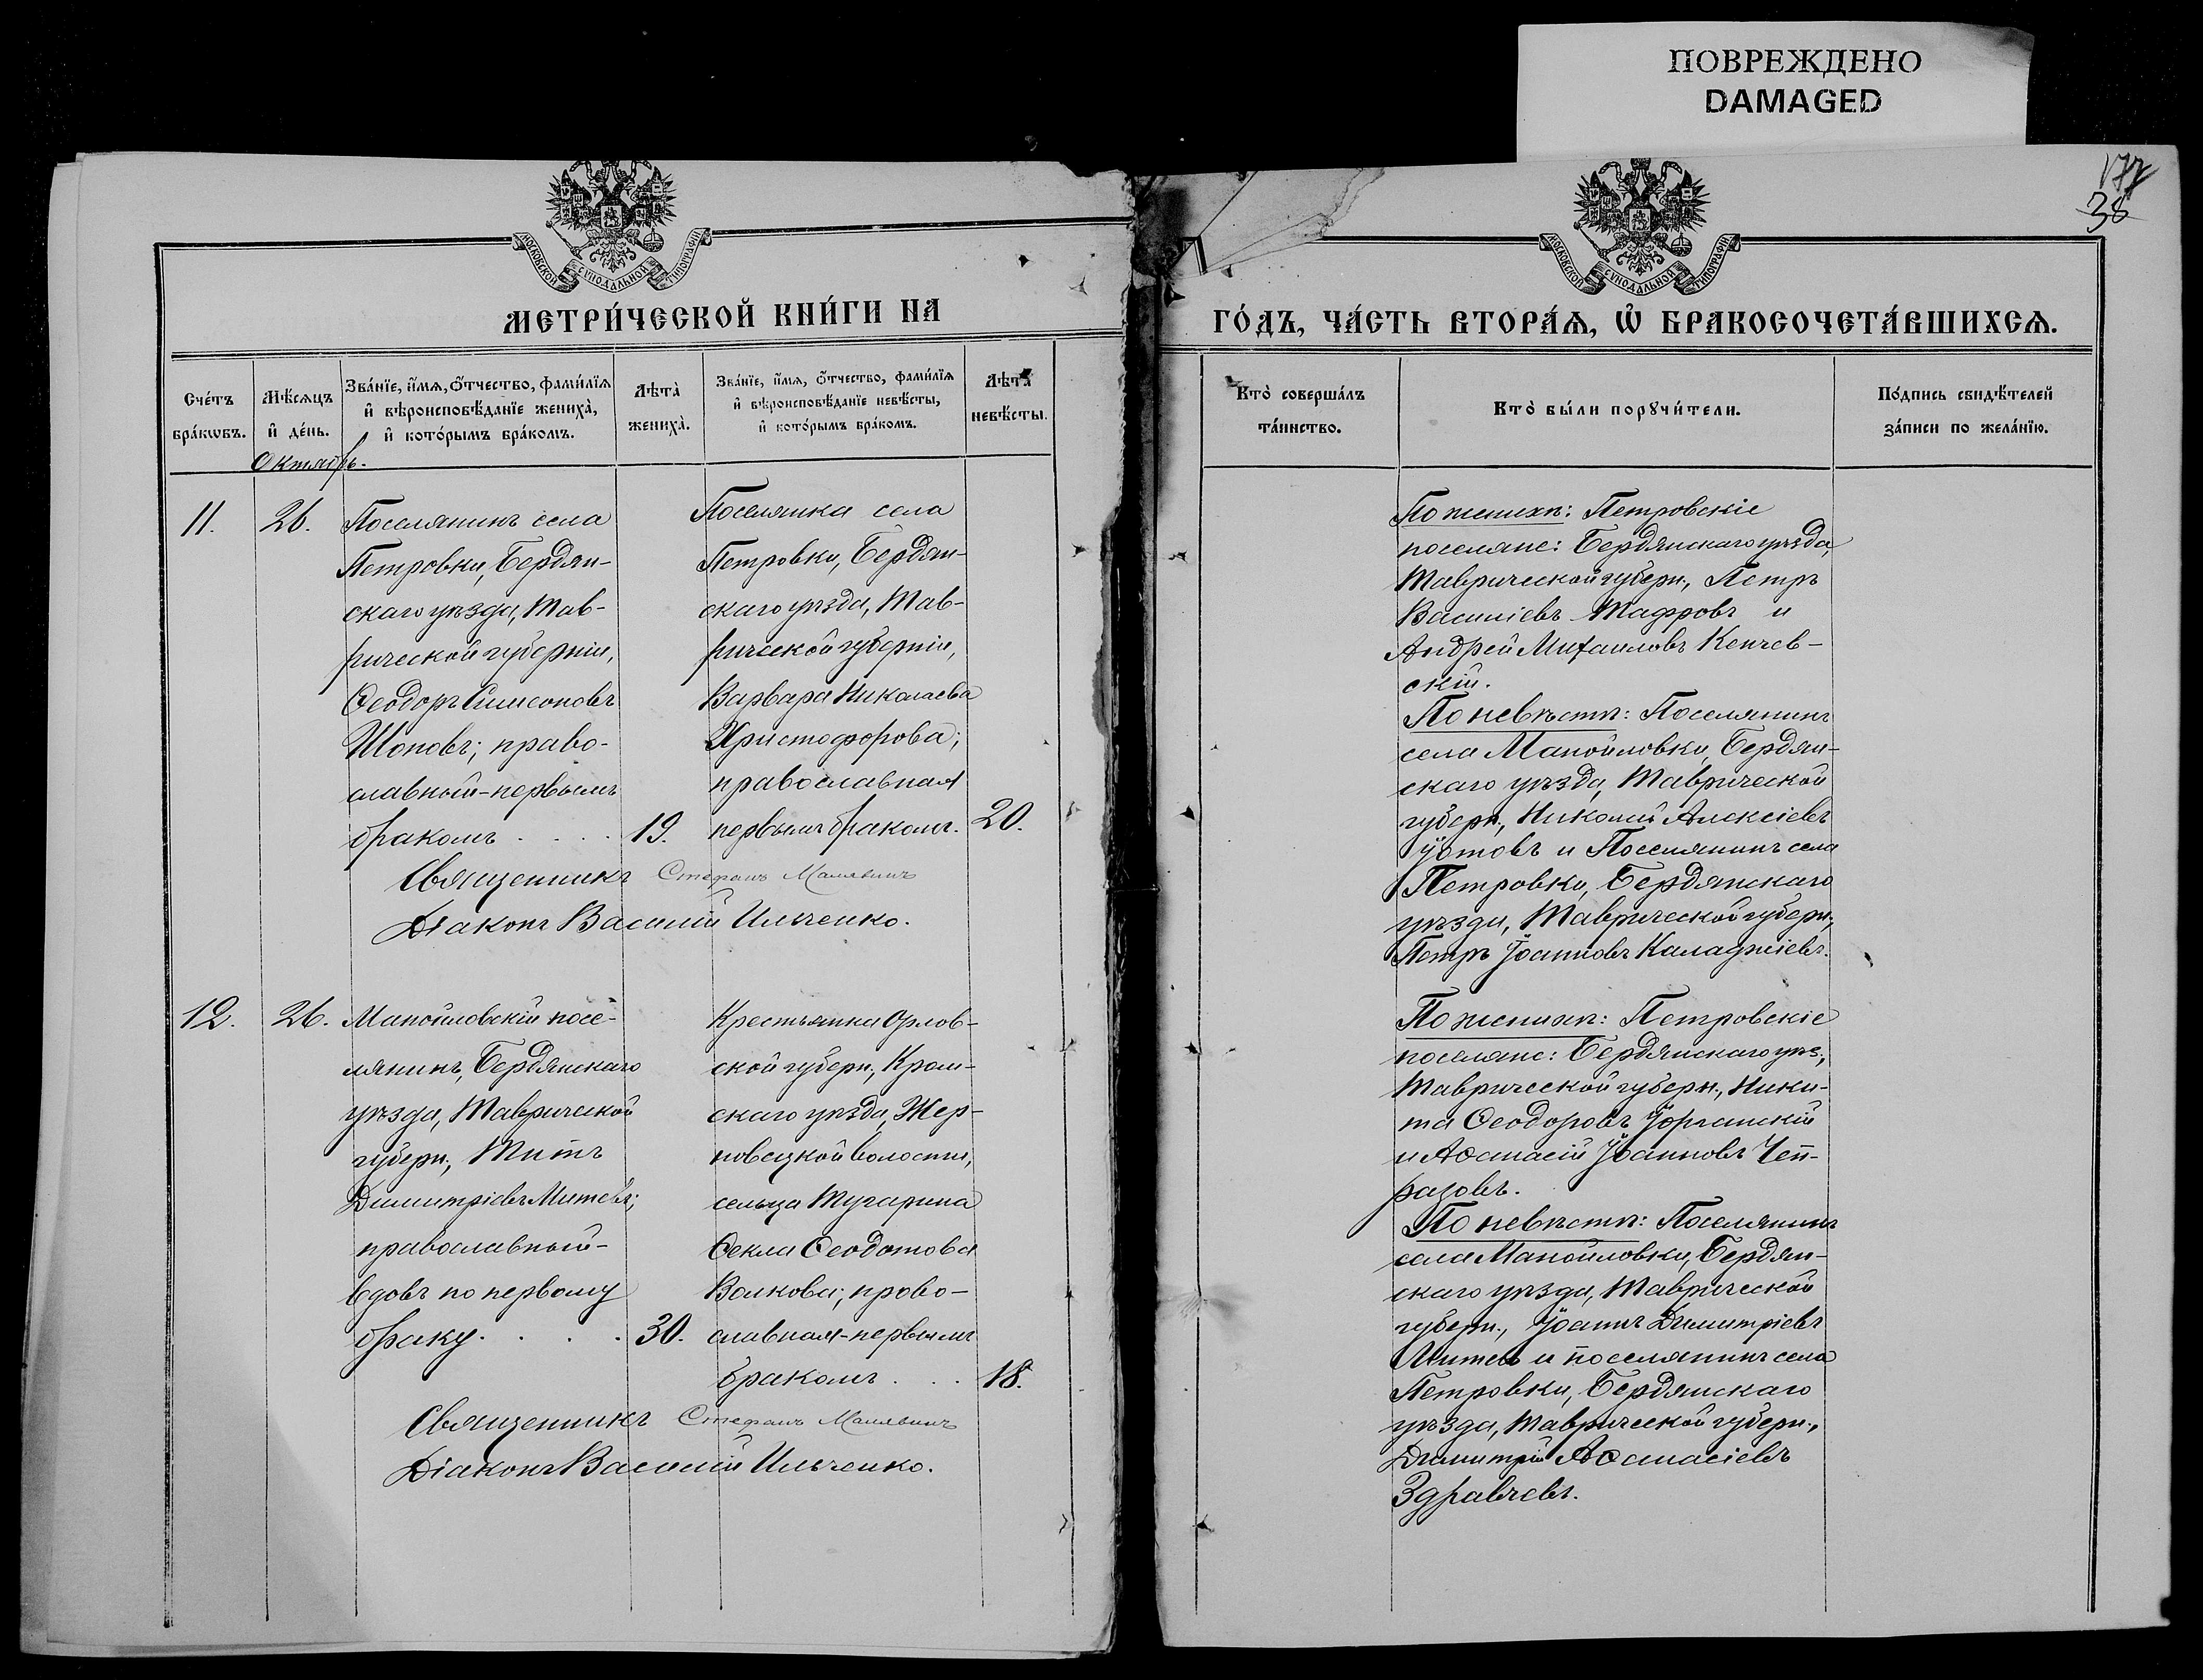 ПОВРЕЖДЕНО
DAMAGED
177
38
МОСКОВСКОЙ СѴНОДАЛЬНОЙ ТИПОГРАФІИ
МОСКОВСКОЙ СѴНОДАЛЬНОЙ ТИПОГРАФІИ
МЕТРИ́ЧЕСКОЙ КНИ́ГИ НА
ГО́ДЪ, ЧА́СТЬ ВТОРА́Ѧ, Ѡ҆ БРАКОСОЧЕТА́ВШИХСѦ.
Сче́тъ
бра́кѡвъ.
Мѣ́сѧцъ
и҆ де́нь.
Зва́нїе, и҆́мѧ, ѻ҆́тчество, фами́лїѧ
и҆ вѣроисповѣ́данїе жениха̀,
и҆ кото́рымъ бра́комъ.
Лѣта̀
жениха̀.
Зва́нїе, и҆́мѧ, ѻ҆́тчество, фами́лїѧ
и҆ вѣроисповѣ́данїе невѣ́сты,
и҆ кото́рымъ бра́комъ.
Лѣта̀
невѣ́сты.
Кто̀ соверша́лъ
та́инство.
Кто̀ бы́ли порꙋчи́тели.
По́дпись свидѣ́телей
за́писи по жела́нїю.
Октябрь.
11.
26.
Поселянинъ села
Петровки, Бердян-
скаго уѣзда, Тав-
рической губерніи,
Ѳеодоръ Симеоновъ
Шоповъ; право-
славный-первымъ
бракомъ . . . .
19.
Поселянка села
Петровки, Бердян-
скаго уѣзда, Тав-
рической губерніи,
Варвара Николаева
Христофорова;
православная
первымъ бракомъ.
20.
Священникъ Стефанъ
Діаконъ Василій Ильченко.
По женихѣ: Петровскіе
поселяне: Бердянскаго уѣзда,
Таврической губерн., Петръ
Василіевъ Тафровъ и
Андрей Михаиловъ Кенчев-
скій.
По невѣстѣ: Поселянинъ
села Манойловки, Бердян-
скаго уѣзда, Таврической
губерн., Николай Алексіевъ
Іотовъ и Поселянинъ села
Петровки, Бердянскаго
уѣзда, Таврической губерн.,
Петръ Іоанновъ
12.
26.
Манойловскій посе-
лянинъ, Бердянскаго
уѣзда, Таврической
губерн., Титъ
Димитріевъ Митевъ;
православный-
вдовъ по первому
браку. . . . .
30.
Крестьянка Орлов-
ской губерн., Кром-
скаго уѣзда, Жер-
новецкой волости,
сельца Тугарина
Ѳекла Ѳеодотова
Волкова; право-
славная-первымъ
бракомъ . . .
18.
Священникъ Стефанъ
Діаконъ Василій Ильченко.
По женихѣ: Петровскіе
поселяне: Бердянскаго уѣз.,
Таврической губерн., Ники-
та Ѳеодоровъ Іорганскій
и Аѳанасій Іоанновъ Чеп-
разовъ.
По невѣстѣ: Поселянинъ
села Манойловки, Бердян-
скаго уѣзда, Таврической
губерн., Іоаннъ Димитріевъ
Митевъ и поселянинъ села
Петровки, Бердянскаго
уѣзда, Таврической губерн.,
Димитрій Аѳанасіевъ
Здравчевъ.